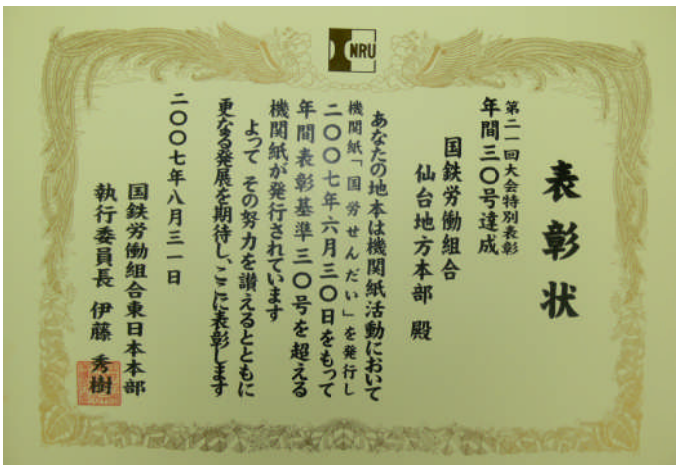 NRU
表彰状
第二一回大会特別表彰
年間三〇号達成
国鉄労働組合
仙台地方本部 殿
あなたの地本は機関紙活動において
機関紙「国労せんだい」を発行し
二〇〇七年六月三〇日をもって
年間表彰基準三〇号を超える
機関紙が発行されています
よって その努力を讃えるとともに
更なる発展を期待し、ここに表彰します
二〇〇七年八月三一日
国鉄労働組合東日本本部
執行委員長 伊藤 秀樹